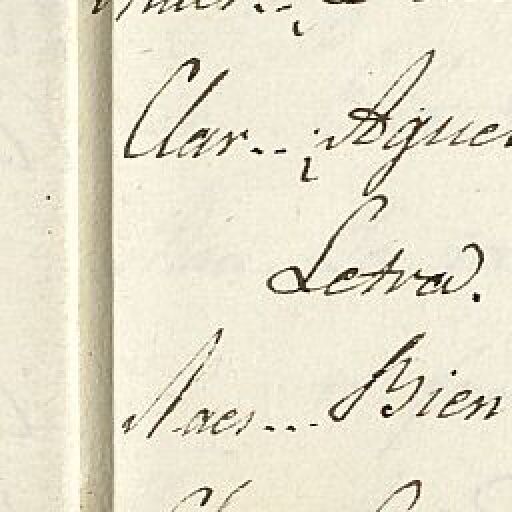 Clar.. ¿Ague
Letra.
Maes... Bien